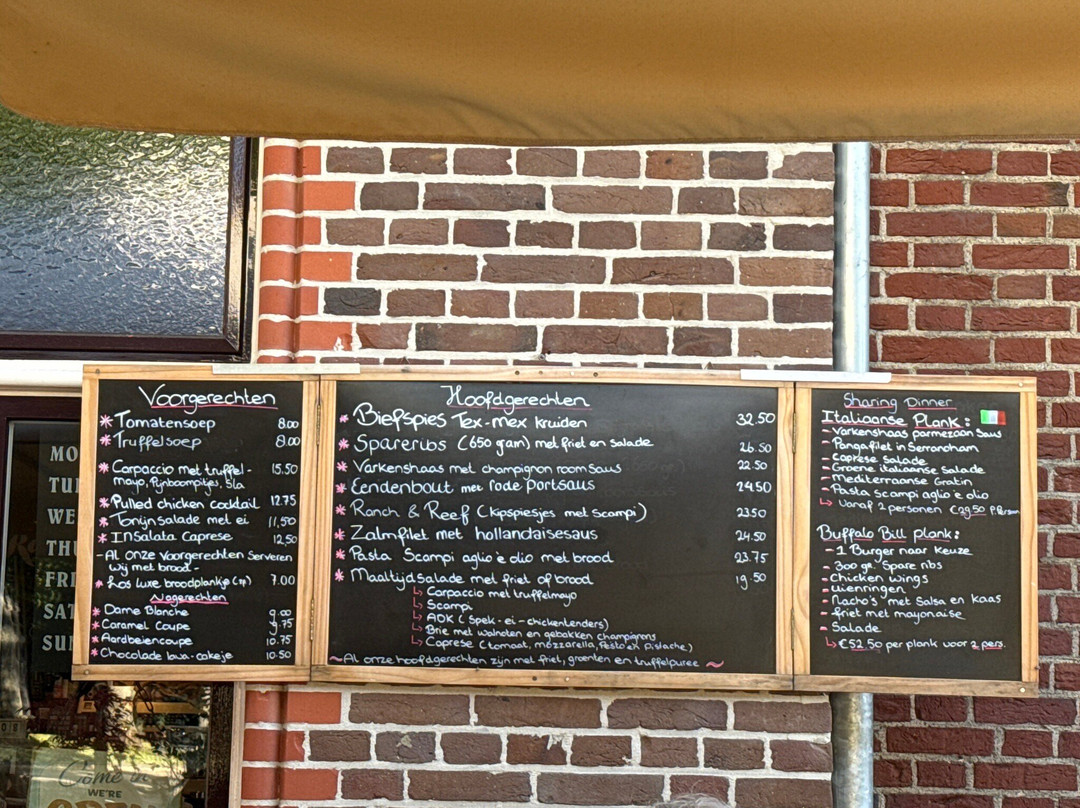 Voorgerechten
* Tomatensoep 8.00
* Truffelsoep 8.00
* Carpaccio met truffel- 15.50
mayo, Pijnboompitjes, sla
* Pulled chicken cocktail 12.75
* Tonijnsalade met ei 11,50
* Insalata Caprese 12,50
- Al onze voorgerechten serveren
wij met brood -
* Los luxe broodplankje (2p) 7.00
Nagerechten
* Dame Blanche 9.00
* Caramel Coupe 9.75
* Aardbeiencoupe 10.75
* Chocolade lava-cakeje 10.50
Hoofdgerechten
* Biefspies Tex-mex kruiden 32.50
* Spareribs (650 gram) met friet en salade 26.50
* Varkenshaas met champignon roomsaus 22.50
* Eendenbout met rode portsaus 24.50
* Ranch & Reef (kipspiesjes met scampi) 23.50
* Zalmfilet met hollandaisesaus 24.50
* Pasta Scampi aglio è olio met brood 23.75
* Maaltijdsalade met friet of brood 19.50
↳ Carpaccio met truffelmayo
↳ Scampi
↳ (Spek - ei - chickentenders)
↳ Brie met walnoten en gebakken champignons
↳ Caprese (tomaat, mozzarella, Pesto en Pistache)
~ Al onze hoofdgerechten zijn met friet, groenten en truffelpuree ~
Sharing Dinner
Italiaanse Plank:
- Varkenshaas parmezaan saus
- Pangafilet in Serranoham
- Caprese Salade
- Groene italiaanse Salade
- mediterraanse Gratin
- Pasta scampi aglio è olio
↳ Vanaf 2 personen €29.50 P.Persoon
Buffalo Bill plank:
- 1 Burger naar keuze
- 300 gr. Spare ribs
- Chicken wings
- Uienringen
- Nacho's met Salsa en kaas
- friet met mayonaise
- Salade
↳ €52.50 per plank voor 2 pers.
MO
TU
WE
THU
FRI
SAT
SUN
Come in
WE'RE
OPEN